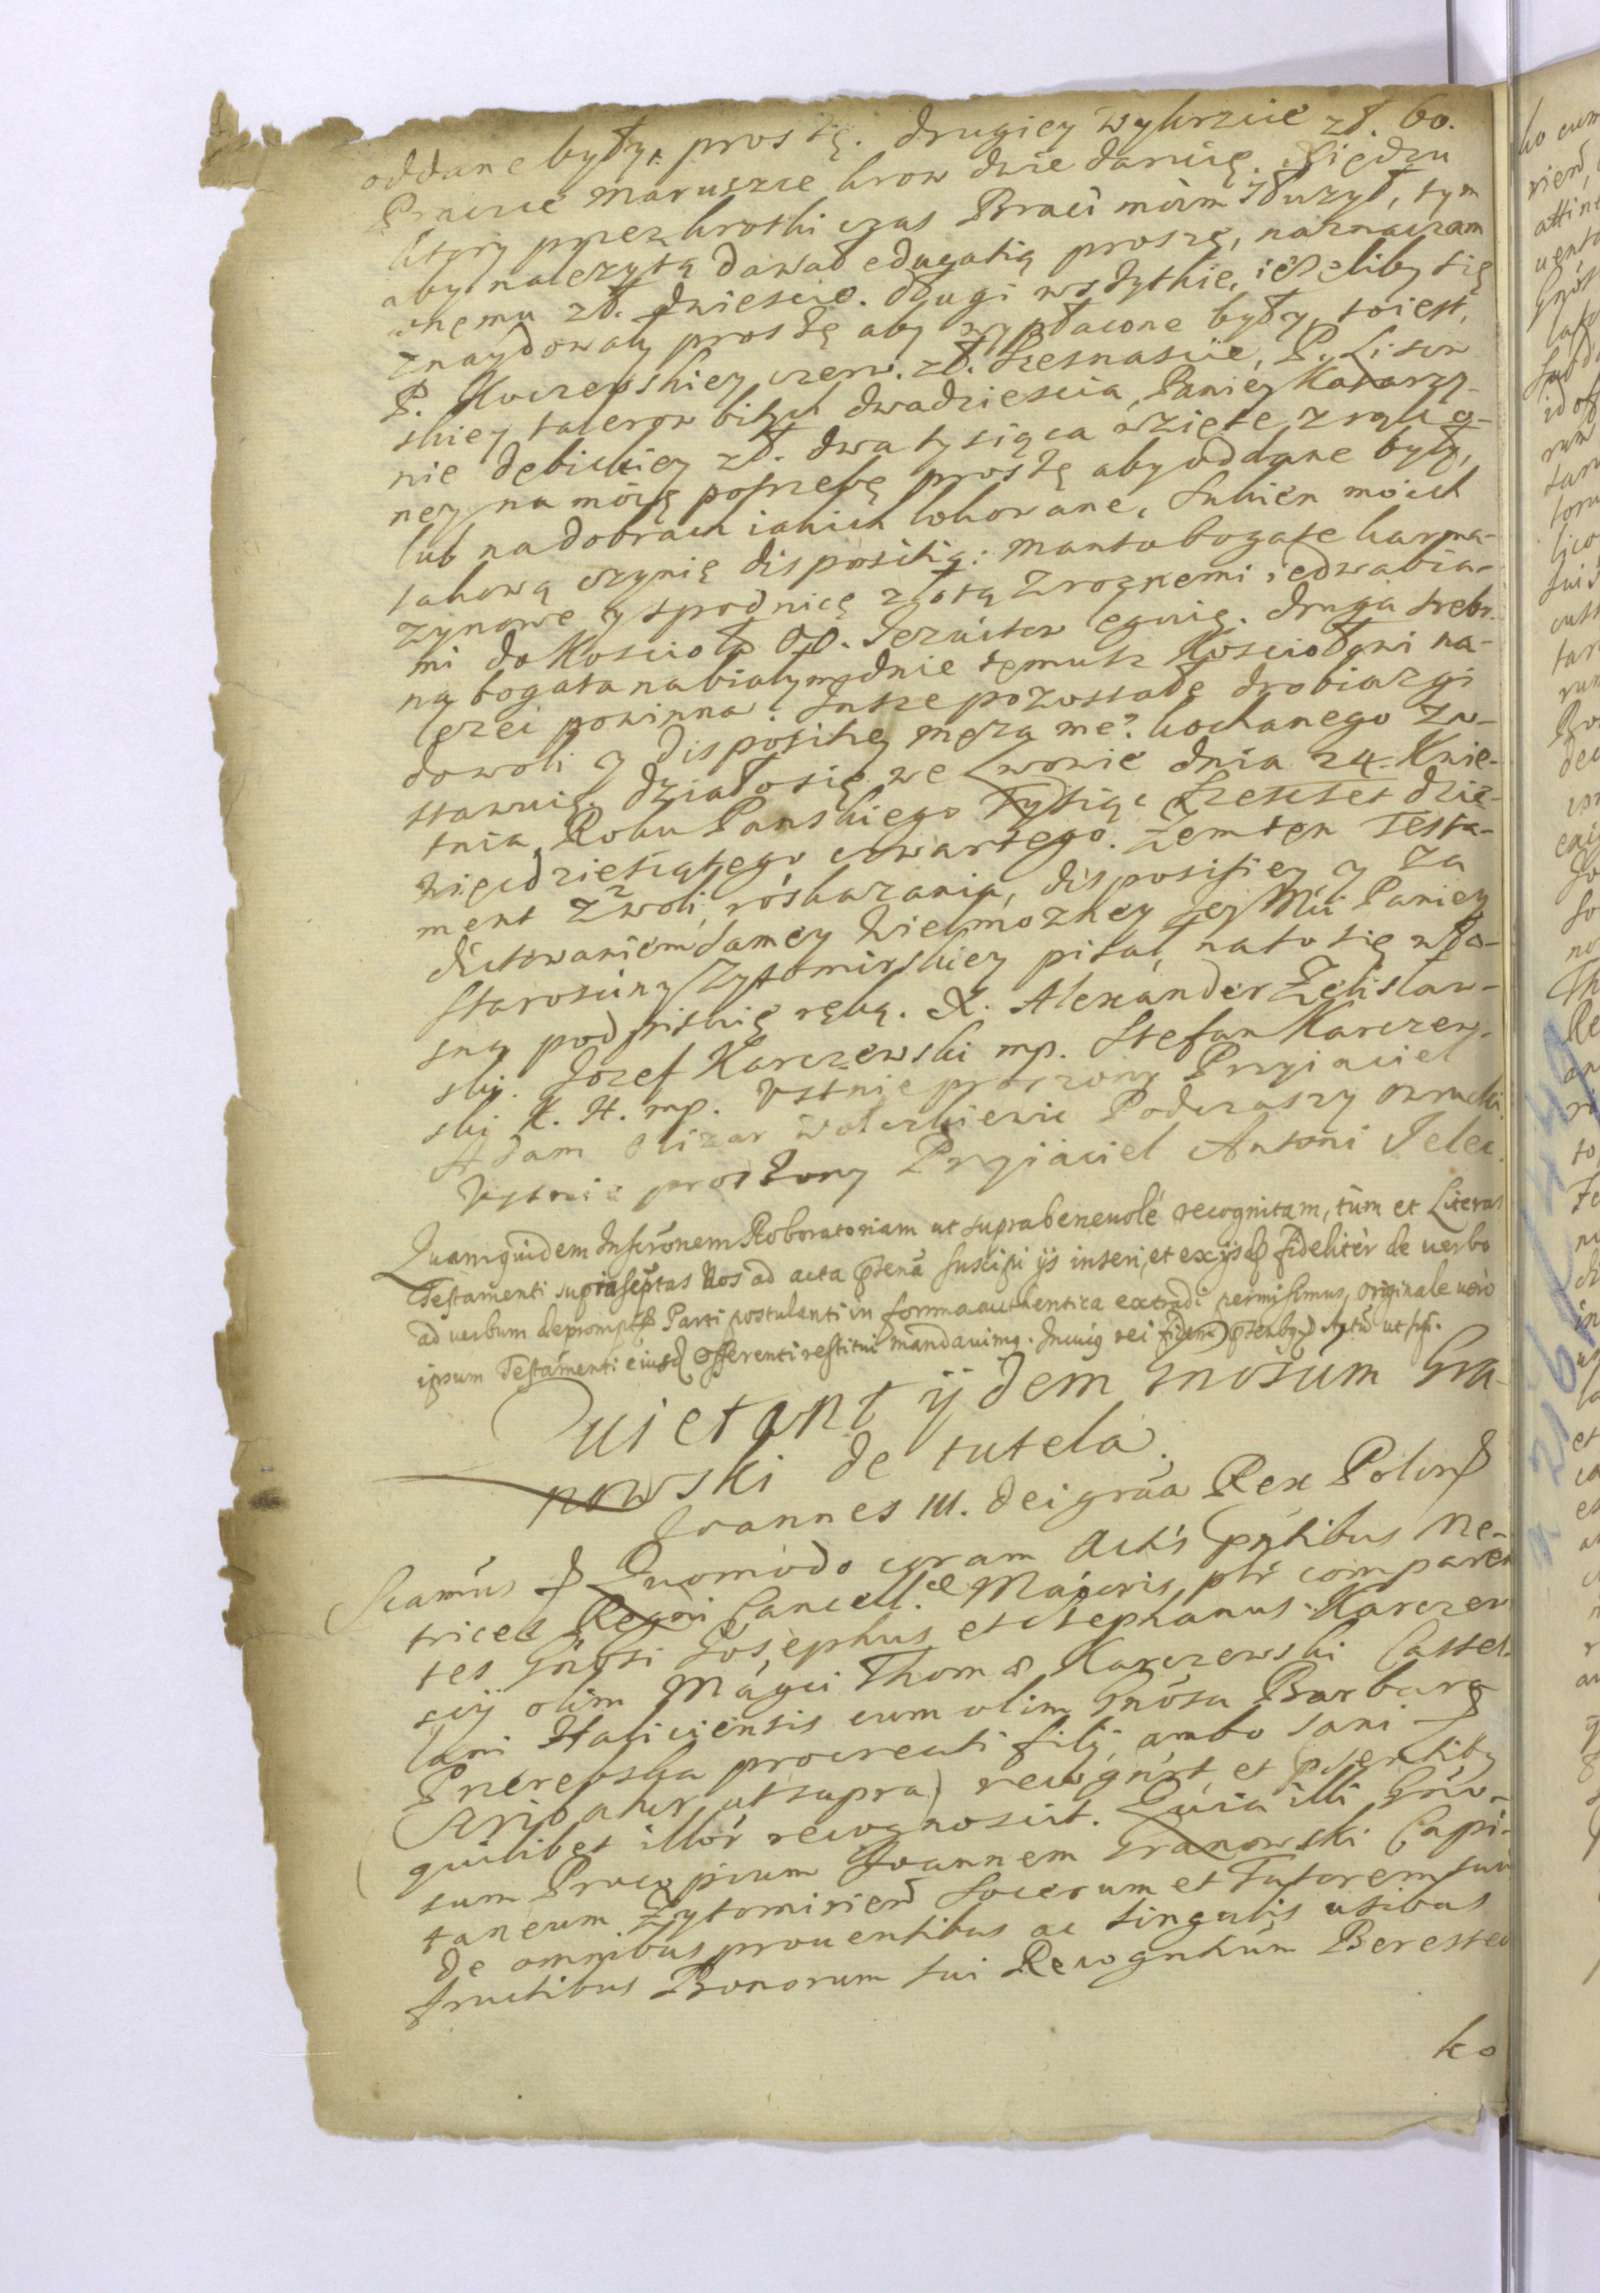 oddane były, proszę. drugiey Wyhrzcie zł. 60.
Praczce Maruszce krow dwie daruię. Xiędzu
ktory przez krotki czas Braci moim służył, tym
aby należytą dawał edugatią proszę, naznaczam
onemu zł. dwiescie. długi wszytkie, ieżeliby się
znaydowały proszę aby wypłacone były, toiest,
P. Kuczewskiey czerw. zł. szesnascie, P. Lisow
skiey talerow bitych dwadziescia, Paniey Katarzy-
nie Dębickiey zł. dwa tysiąca wzięte z ręku o-
ney na moię potrzebę proszę aby oddane były,
lub na dobrach iakich lokowane. Sukien moich
takową czynię disposicią: Manto bogate karma-
zynowe y spodnicę złotą z roznemi iedwabia-
mi do Kościoła OO. Jezuitow leguię. druga srebr-
na bogata na białym dnie temusz Kosciołowi na-
leżeć powinna. Insze pozostałe drobiazgi
do woli y dispositiey męża me? kochanego zo-
stawuię. działo się we Lwowie dnia 24. Kwie-
tnia, Roku Panskiego Tysiąc szescset dzie-
więcdziesiątego czwartego. Żem ten Testa-
ment z woli, roskazania, dispositiey y za
dictowaniem samey Wielmozney Jey Mci Paniey
Starosciny Zytomirskiey pisał, na to się wła-
sną podpisuię ręką. X. Alexander Żelisław-
ski. Jozef Karczewski mp. Stefan Karczew-
ski K. H. mp. Ustnie proszony Przyiaciel
Adam Olizar Wołczkiewic Podczaszy owrucki.
Ustnie proszony Przyiaciel Antoni Jelec.
Quamquidem Inscrōnem Roboratoriam ut supra beneuolè recognitam, tùm et Literas
Testamenti suprascrptas Nos ad acta pntia suscipi ijs inseri, et ex ijsd fidelitèr de uerbo
ad uerbum depromptas Parti postulanti in forma authentica extradi permisimus, originale uerò
ipsum Testamenti eiusd offerenti restitui mandauimus. In cuius rei fidem pntibus Actū ut supra.
Quietant ijdem Gnosum Gra-
nowski de tutela.
Joannes III. Dei grãa Rex Polon
Scamus Quomodo coram Actis pntibus Me-
trices Regni Cancell. Maioris, plr comparen
tes Gnosi Josephus et Stephanus Karczew
scij olim Magci Thomæ Karczewski Castel-
lani Haliciensis cum olim Gnosa Barbara
Przerebska procreati filij, ambo sani
(Scribatur ut supra) recognrt, et psentibus
quilibet illor recognoscit. Quia illi Gno-
sum Procopium Joannem Granowski Capi-
taneum Zytomirien Socerum et Tutorem suu
de omnibus prouentibus ac singulis utibus
fructibus Bonorum sui Recogntium Berestec
ko